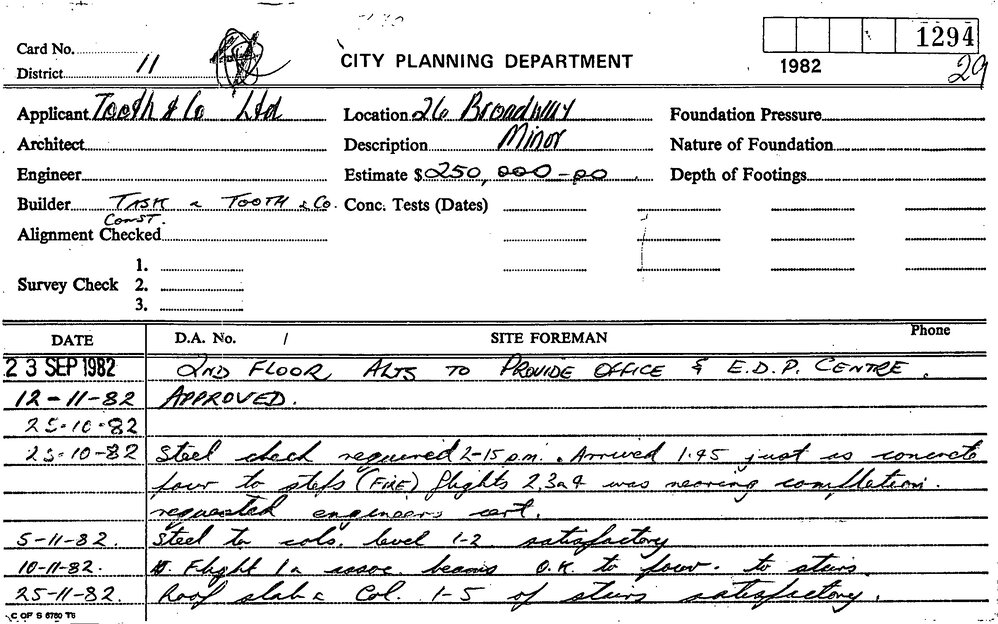 1294
Card No.
District 11
CITY PLANNING DEPARTMENT
1982
29
Applicant Tooth & Co Ltd
Location 26 Broadway
Foundation Pressure
Architect
Description Minor
Nature of Foundation
Engineer
Estimate $ 250,000-00
Depth of Footings
Builder TASK CONST. & TOOTH & Co.
Conc. Tests (Dates)
Alignment Checked
Survey Check
1.
2.
3.
DATE D.A. No. / SITE FOREMAN Phone
23 SEP 1982 2ND FLOOR ALTS TO PROVIDE OFFICE & E.D.P. CENTRE.
12-11-82 APPROVED.
25-10-82
25-10-82 Steel check required 2-15 p.m. Arrived 1.45 just as concrete
pour to steps (FIRE) flights 2 3 & 4 was nearing completion.
requested engineers cert.
5-11-82. Steel to cols. level 1-2 satisfactory
10-11-82. Flight 1 & assoc. beams O.K. to pour. to stairs.
25-11-82. Roof slab & Col. 1-5 of stairs satisfactory.
C OF S 6780 T6